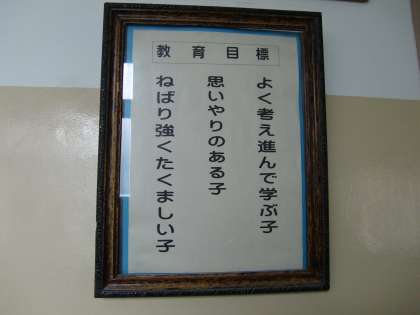 教育目標
よく考え進んで学ぶ子
思いやりのある子
ねばり強くたくましい子